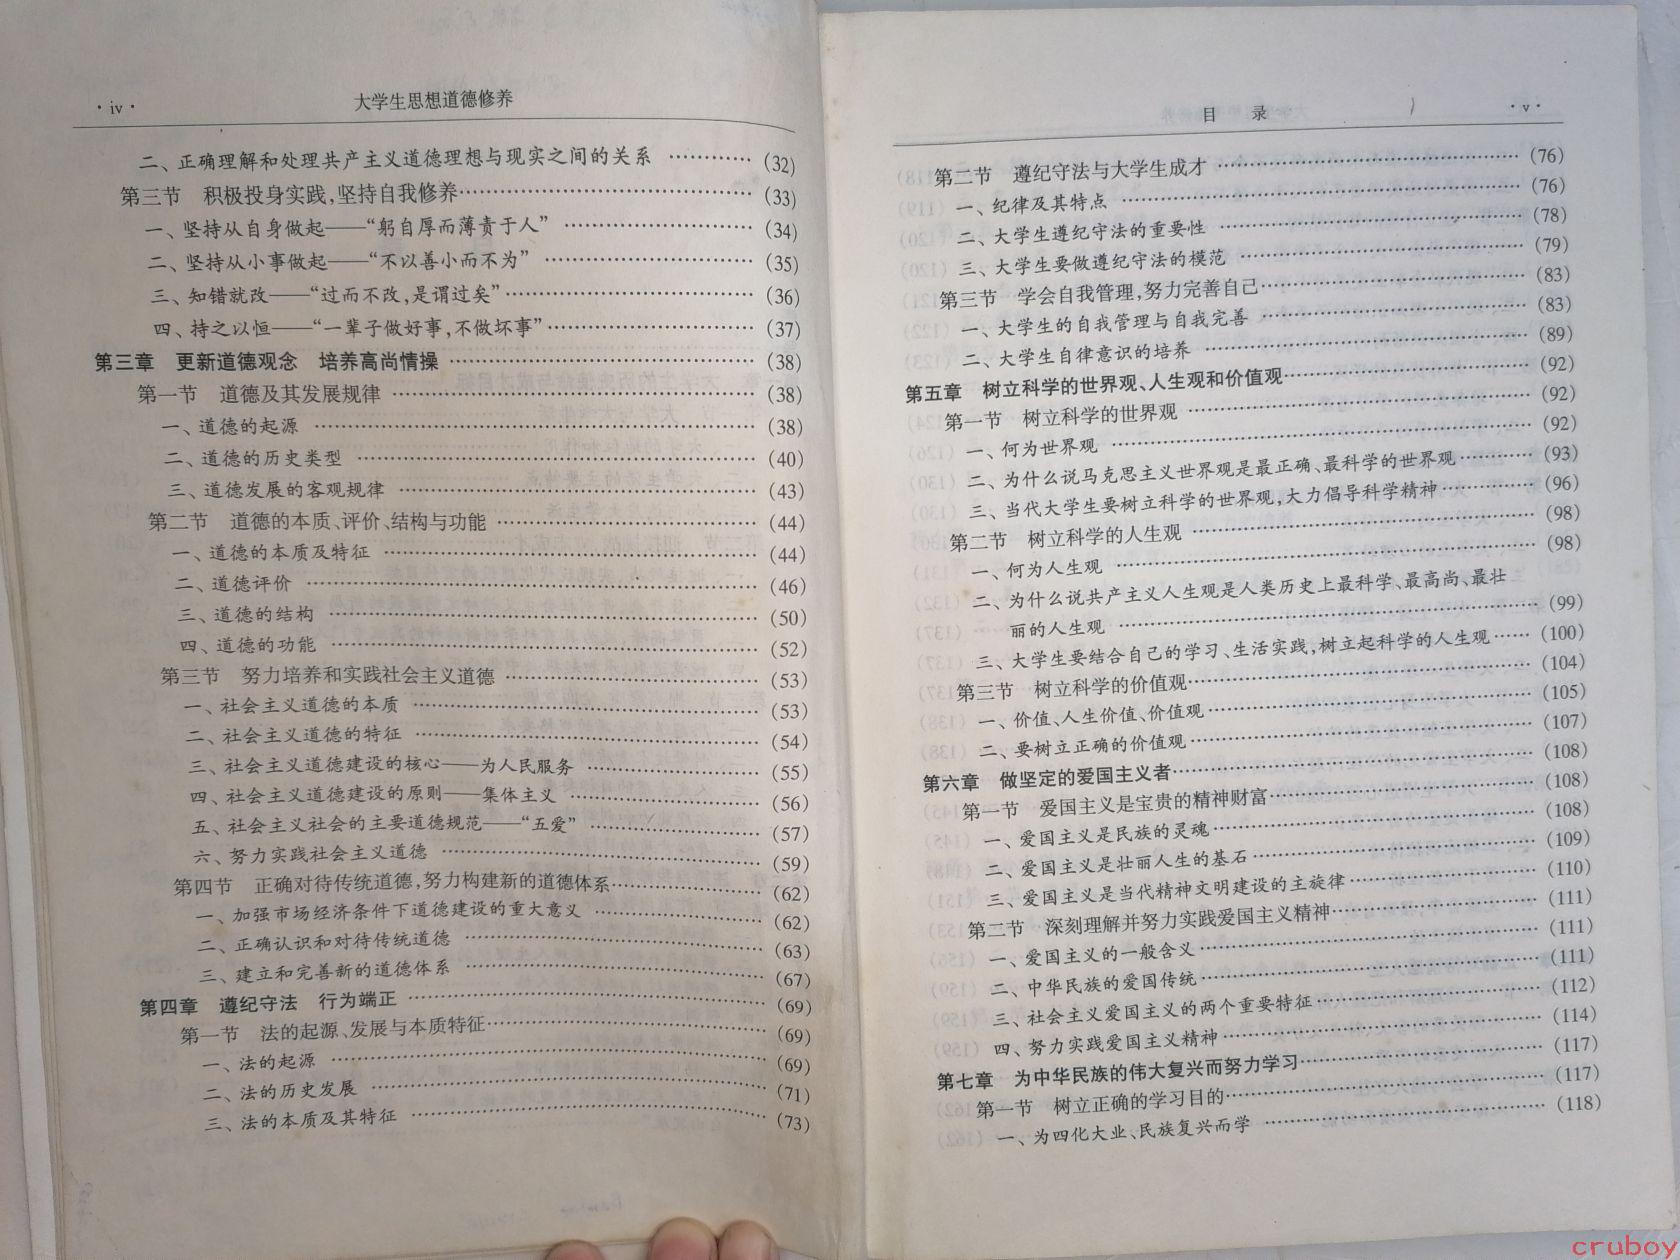 · iv ·
大学生思想道德修养
二、正确理解和处理共产主义道德理想与现实之间的关系 ………… (32)
第三节 积极投身实践,坚持自我修养………………………………… (33)
一、坚持从自身做起——“躬自厚而薄责于人” …………………… (34)
二、坚持从小事做起——“不以善小而不为” ……………………… (35)
三、知错就改——“过而不改,是谓过矣”…………………………… (36)
四、持之以恒——“一辈子做好事,不做坏事”……………………… (37)
第三章 更新道德观念 培养高尚情操 ………………………………… (38)
第一节 道德及其发展规律 …………………………………………… (38)
一、道德的起源 ………………………………………………………… (38)
二、道德的历史类型 …………………………………………………… (40)
三、道德发展的客观规律 ……………………………………………… (43)
第二节 道德的本质、评价、结构与功能 ……………………………… (44)
一、道德的本质及特征 ………………………………………………… (44)
二、道德评价 …………………………………………………………… (46)
三、道德的结构 ………………………………………………………… (50)
四、道德的功能 ………………………………………………………… (52)
第三节 努力培养和实践社会主义道德 ……………………………… (53)
一、社会主义道德的本质 ……………………………………………… (53)
二、社会主义道德的特征 ……………………………………………… (54)
三、社会主义道德建设的核心——为人民服务 ……………………… (55)
四、社会主义道德建设的原则——集体主义 ………………………… (56)
五、社会主义社会的主要道德规范——“五爱” ……………………… (57)
六、努力实践社会主义道德 …………………………………………… (59)
第四节 正确对待传统道德,努力构建新的道德体系………………… (62)
一、加强市场经济条件下道德建设的重大意义 ……………………… (62)
二、正确认识和对待传统道德 ………………………………………… (63)
三、建立和完善新的道德体系 ………………………………………… (67)
第四章 遵纪守法 行为端正 …………………………………………… (69)
第一节 法的起源、发展与本质特征…………………………………… (69)
一、法的起源 …………………………………………………………… (69)
二、法的历史发展 ……………………………………………………… (71)
三、法的本质及其特征 ………………………………………………… (73)
目 录
· v ·
第二节 遵纪守法与大学生成才 ……………………………………… (76)
一、纪律及其特点 ……………………………………………………… (76)
二、大学生遵纪守法的重要性 ………………………………………… (78)
三、大学生要做遵纪守法的模范 ……………………………………… (79)
第三节 学会自我管理,努力完善自己………………………………… (83)
一、大学生的自我管理与自我完善 …………………………………… (83)
二、大学生自律意识的培养 …………………………………………… (89)
第五章 树立科学的世界观、人生观和价值观………………………… (92)
第一节 树立科学的世界观 …………………………………………… (92)
一、何为世界观 ………………………………………………………… (92)
二、为什么说马克思主义世界观是最正确、最科学的世界观 ……… (93)
三、当代大学生要树立科学的世界观,大力倡导科学精神 ………… (96)
第二节 树立科学的人生观 …………………………………………… (98)
一、何为人生观 ………………………………………………………… (98)
二、为什么说共产主义人生观是人类历史上最科学、最高尚、最壮
丽的人生观 ……………………………………………………………… (99)
三、大学生要结合自己的学习、生活实践,树立起科学的人生观 …… (100)
第三节 树立科学的价值观…………………………………………… (104)
一、价值、人生价值、价值观 ………………………………………… (105)
二、要树立正确的价值观……………………………………………… (107)
第六章 做坚定的爱国主义者…………………………………………… (108)
第一节 爱国主义是宝贵的精神财富………………………………… (108)
一、爱国主义是民族的灵魂…………………………………………… (108)
二、爱国主义是壮丽人生的基石……………………………………… (109)
三、爱国主义是当代精神文明建设的主旋律………………………… (110)
第二节 深刻理解并努力实践爱国主义精神………………………… (111)
一、爱国主义的一般含义……………………………………………… (111)
二、中华民族的爱国传统……………………………………………… (111)
三、社会主义爱国主义的两个重要特征……………………………… (112)
四、努力实践爱国主义精神…………………………………………… (114)
第七章 为中华民族的伟大复兴而努力学习…………………………… (117)
第一节 树立正确的学习目的………………………………………… (117)
一、为四化大业、民族复兴而学 ……………………………………… (118)
cruboy